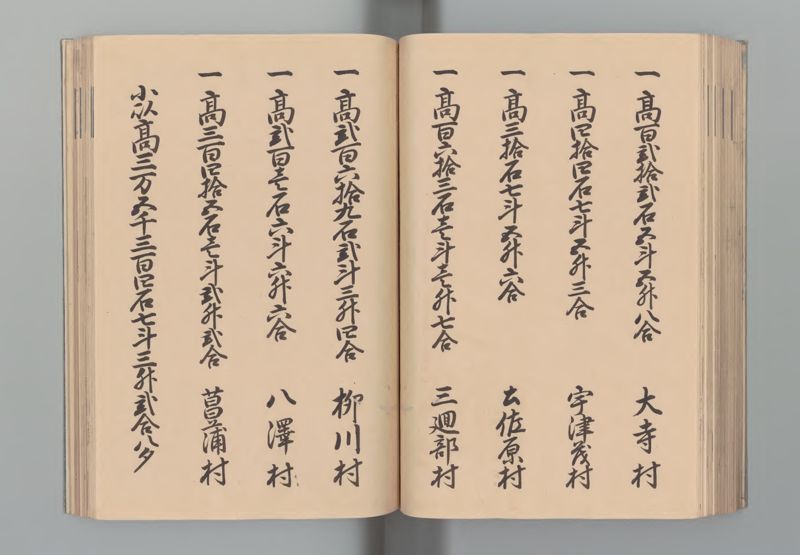 一高百弐拾弐石五斗五升八合 大寺村
一高四拾四石七斗五升三合 宇津茂村
一高三拾石七斗五升六合 土佐原村
一高百六拾三石壱斗壱升七合 三廻部村
一高弐百六拾九石弐斗三升四合 柳川村
一高弐百壱石六斗六升六合 八澤村
一高三百四拾五石壱斗弐升弐合 菖蒲村
小以高三万五千三百四石七斗三升弐合八夕